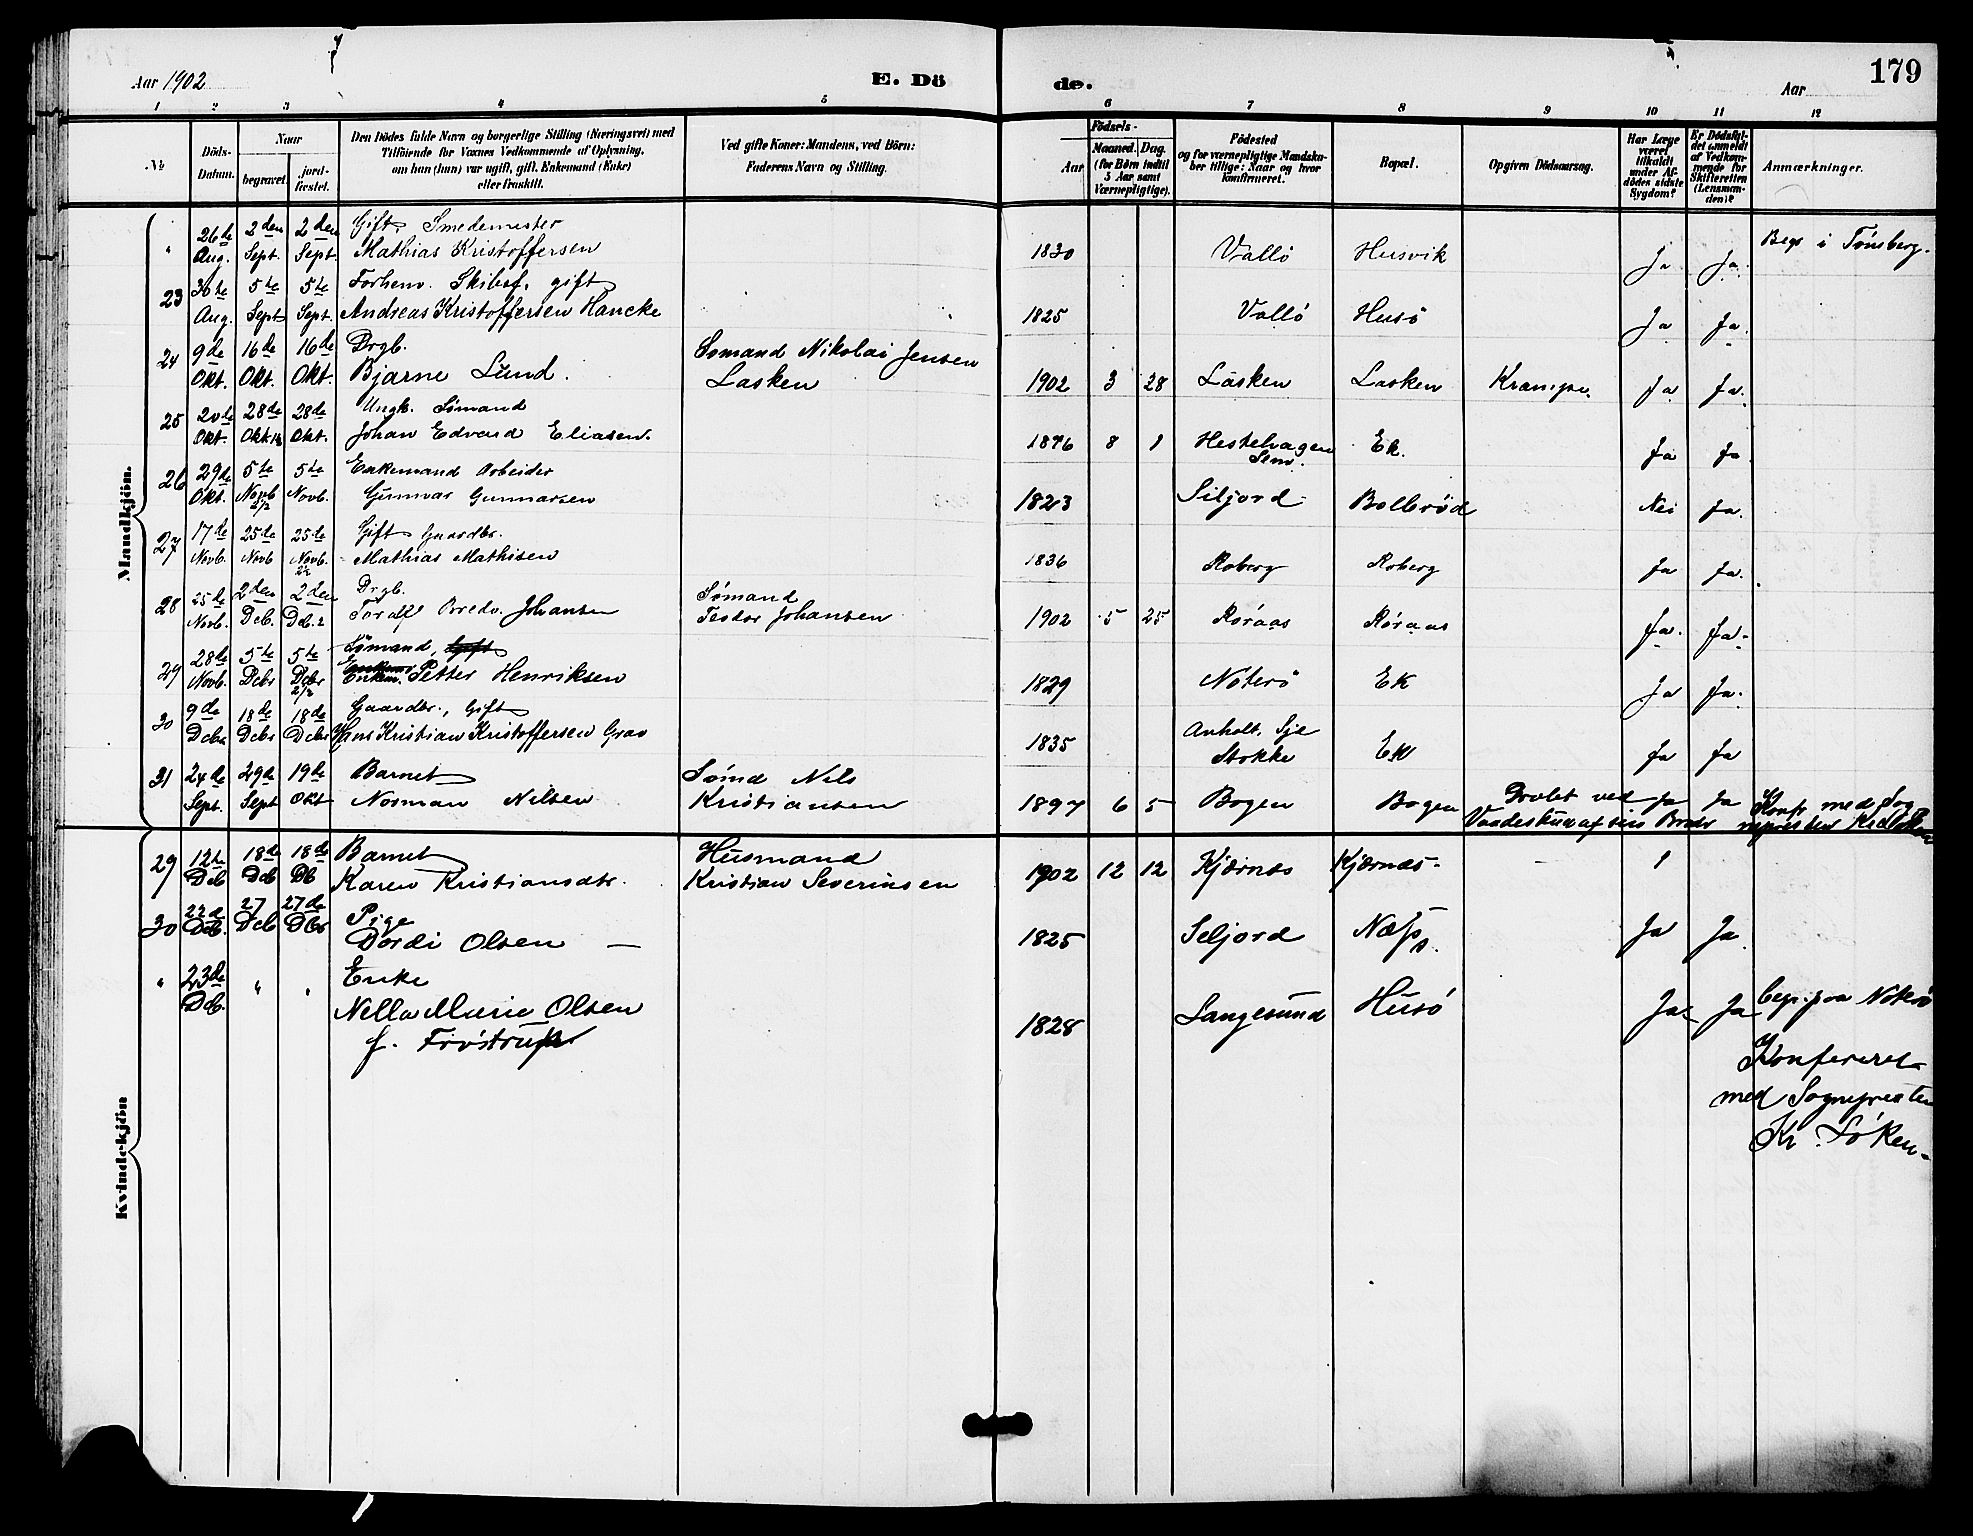 Aar 1902
E. Dö
de.
Aar
179
1 2 3 4 5 6 7 8 9 10 11 12
№
Döds-
Datum.
Naar
begravet.
jord-
fæstet.
Den Dödes fulde Navn og borgerlige Stilling (Næringsvei) med
Tilföiende for Voxnes Vedkommende af Oplysning,
om han (hun) var ugift, gift, Enkemand (Enke)
eller fraskilt.
Ved gifte Koner: Mandens, ved Börn:
Faderens Navn og Stilling.
Födsels-
Aar
Maaned. Dag.
(for Börn indtil
5 Aar samt
Værnepligtige).
Födested
og for værnepligtige Mandska-
ber tillige: Naar og hvor
konfirmeret.
Bopæl.
Opgiven Dödsaarsag.
Har Læge
været
tilkaldt
under Af-
dödes sidste
Sygdom?
Er Dödsfal-
det anmeldt
af Vedkom-
mende for
Skifteretten
(Lensman-
den)?
Anmærkninger.
Mandkjön.
" 26de Aug. 2den Sept. 2den Sept. Gift Smedemester
Mathias Kristoffersen 1830 Vallö Husvik Ja Ja. Begr i Tönsberg.
23 30te Aug. 5te Sept 5te Sept. Forhenv. Skibsf. gift
Andreas Kristoffersen Hancke 1825 Vallö Husö Ja Ja.
24 9de Okt. 16de Okt. 16de Okt. Drgb.
Bjarne Lund. Sömand Nikolai Jensen
Lasken 1902 3 28 Lasken Lasken Krampe. Ja Ja.
25 20de Okt. 28de Okt 28de Okt. Ungk. Sömand
Johan Edvard Eliasen. 1876 8 1 Hestehagen
Sem. Ek. Ja Ja.
26 29de Okt. 5te Novb 5te Novb. Enkemand Arbeider
Gunnar Gunnarsen 1823 Siljord Bolbröd Nei Ja.
27 17de Novb. 25de Novb 25de Novb. Gift Gaardbr.
Mathias Mathisen 1836 Roberg Roberg Ja Ja.
28 25de Novb. 2den Dcb. 2den Dcb. Drgb.
Toralf Bredo Johansen Sömand
Teodor Johansen 1902 5 25 Röraas Röraas Ja. Ja.
29 28de Novb. 5te Dcbr 5te Dcbr Sömand, Gift
Enkem. Petter Henriksen 1829 Nöterö Ek Ja Ja.
30 9de Dcbr 18de Dcbr 18de Dcbr Gaardbr., Gift
Hans Kristian Kristoffersen Grav 1835 Anholt,
Stokke Ek Ja Ja
31 24de Sept. 29de Sept 19de Okt Barnet
Norman Nilsen Sömd Nils
Kristiansen 1897 6 5 Bogen Bogen Ja Ja
Kvindekjön
29 12te Dcb 18de Dcb 18de Db Barnet
Karen Kristiansdtr. Husmand
Kristian Severinsen 1902 12 12 Kjærnes Kjærnes
30 22de Dcb. 27 Dcb 27de Dbr Pige
Dordi Olsen 1825 Seljord Næss. Ja Ja.
" 23de Dcb. " " Enke
Nella Marie Olsen
f. Fröstrup 1828 Langesund Husö Ja Ja begr. paa Nöterö
Konfereret
med Sognepresten
Kr. Löken